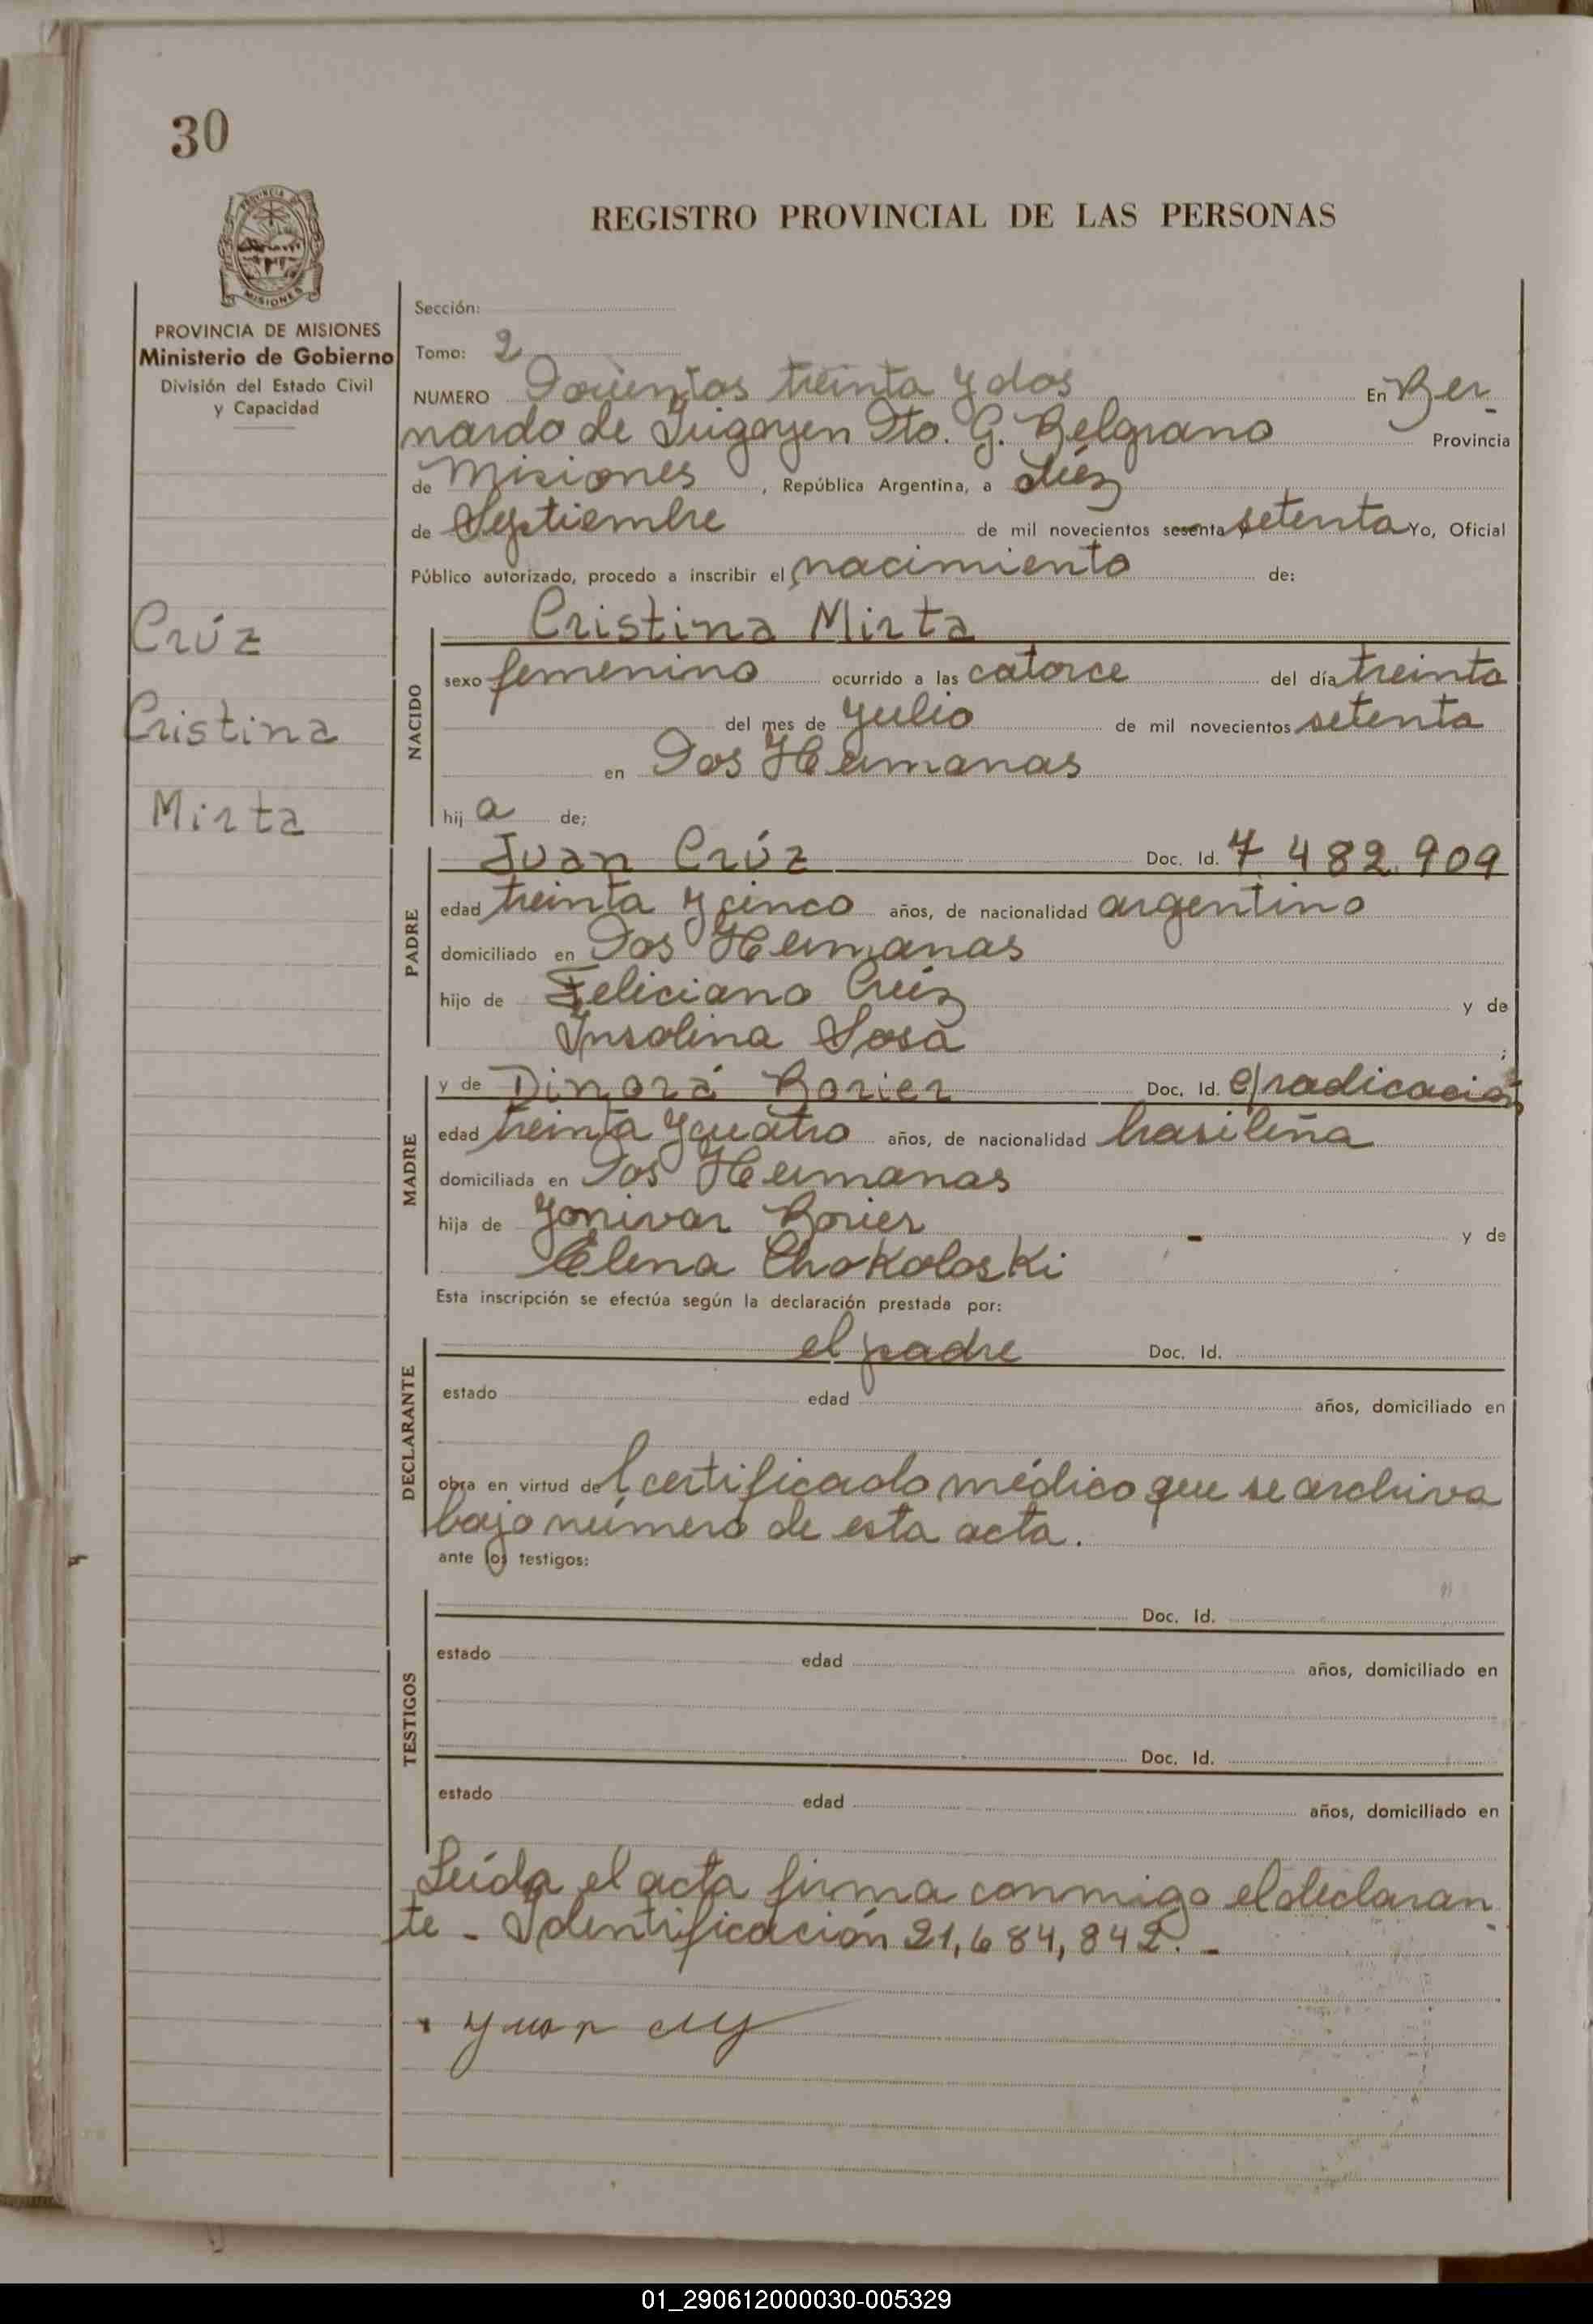 30
REGISTRO PROVINCIAL DE LAS PERSONAS
MISIONES
PROVINCIA DE MISIONES
Ministerio de Gobierno
División del Estado Civil
y Capacidad
Crúz
Cristina
Mirta
Sección:
Tomo: 2
NUMERO Docientos treinta y dos En Ber-
nardo de Irigoyen Dto. G. Belgrano Provincia
de Misiones, República Argentina, a diéz
de Septiembre de mil novecientos sesenta y setenta Yo, Oficial
Público autorizado, procedo a inscribir el nacimiento de:
NACIDO
Cristina Mirta
sexo femenino ocurrido a las catorce del día treinta
del mes de Julio de mil novecientos setenta
en Dos Hermanas
hij a de;
PADRE
Juan Crúz Doc. Id. 7 482.909
edad treinta y cinco años, de nacionalidad argentino
domiciliado en Dos Hermanas
hijo de Feliciano Crúz y de
Insolina Sosa ;
MADRE
y de Dinorá Borier Doc. Id. e/radicación
edad treinta y cuatro años, de nacionalidad brasileña
domiciliada en Dos Hermanas
hija de Jonivar Borier - y de
Elena Chokoloski
Esta inscripción se efectúa según la declaración prestada por:
DECLARANTE
el padre Doc. Id.
estado edad años, domiciliado en
obra en virtud del certificado médico que se archiva
bajo número de esta acta.
ante los testigos:
TESTIGOS
Doc. Id.
estado edad años, domiciliado en
Doc. Id.
estado edad años, domiciliado en
Leída el acta firma conmigo el declaran-
te - Identificación 21,684,842. -
Juan
01_290612000030-005329